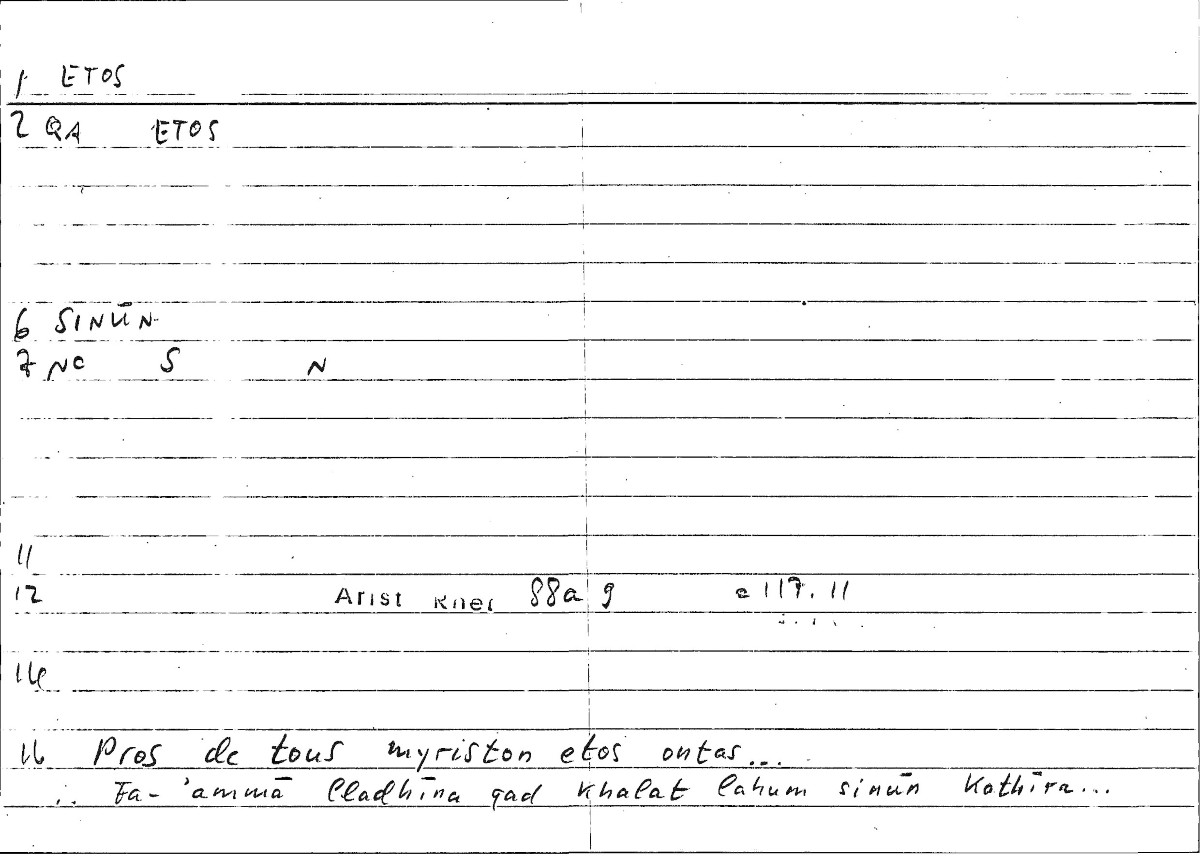 1 ETOS
2 QA ETOS
6 SINŪN
7 NC S N
11
12 Arist Rhet 88a 9 a 117. 11
14
16 Pros de tous myriston etos ontas...
∴ Fa-'ammā lladhīna qad khalat lahum sinūn kathīra...